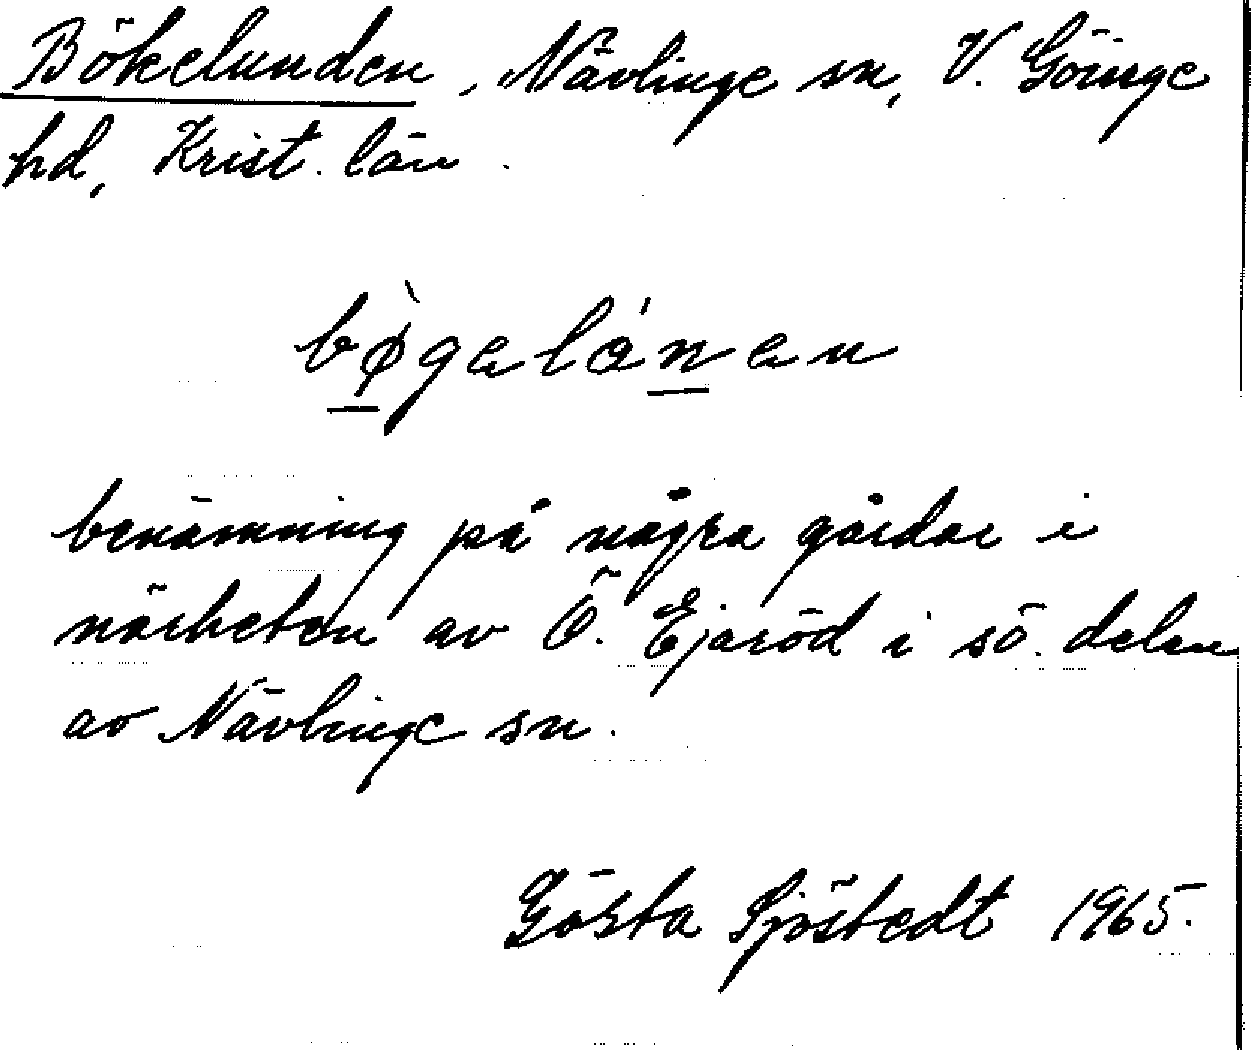 Bökelunden, Nävlinge sn, V. Göinge
hd, Krist. län.
bø̀galánan
benämning på några gårdar i
närheten av Ö. Ejaröd i sö. delen
av Nävlinge sn.
Gösta Sjöstedt 1965.